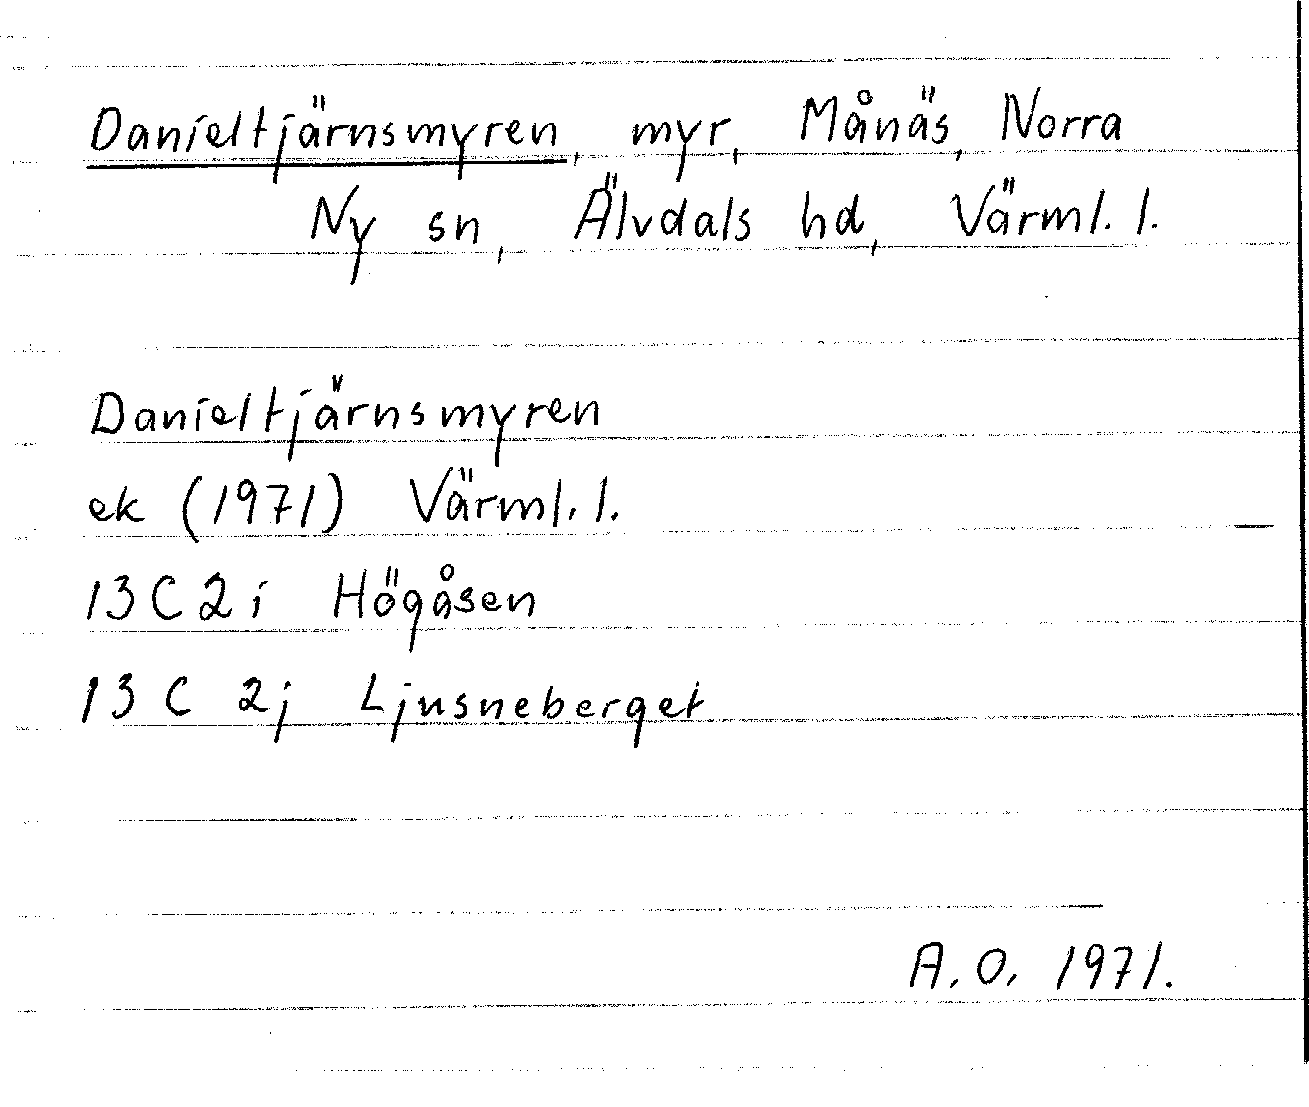 Danieltjärnsmyren, myr, Månäs, Norra
Ny sn, Älvdals hd, Värml. l.
Danieltjärnsmyren
ek (1971) Värml. l.
13 C 2 i Högåsen
13 C 2j Ljusneberget
A. O. 1971.